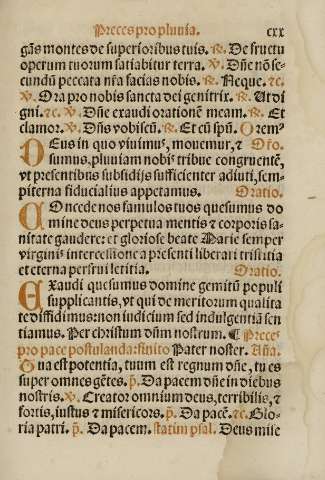 Preces pro pluuia. cxx
gãs montes de superioribus tuis. ℟. De fructu
operum tuorum satiabitur terra. ℣. Dñe nõ se-
cundũ peccata nr̃a facias nobis. ℟. Neque. ⁊c.
℣. Ora pro nobis sancta dei genitrix. ℟. Ut di
gni. ⁊c. ℣. Dñe exaudi orationẽ meam. ℟. Et
clamor. ℣. Dñs vobiscũ. ℟. Et cũ sp̃u. Orem⁹
DEus in quo viuim⁹, mouemur, ⁊ Oro.
sumus, pluuiam nobis tribue congruentẽ,
vt presentibus subsidijs sufficienter adiuti, sem-
piterna fiducialius appetamus. Oratio.
COncede nos famulos tuos quesumus do
mine deus perpetua mentis ⁊ corporis sa-
nitate gaudere: et gloriose beate Marie semper
virginis intercessione a presenti liberari tristitia
et eterna perfrui letitia. Oratio.
EXaudi quesumus domine gemitũ populi
supplicantis, vt qui de meritorum qualita
te diffidimus: non iudicium sed indulgentiã sen
tiamus. Per christum dñm nostrum. ¶ Preces
pro pace postulanda: finito Pater noster. Añã.
Tua est potentia, tuum est regnum dñe, tu es
super omnes gẽtes. p̃. Da pacem dñe in diebus
nostris. ℣. Creator omnium deus, terribilis, ⁊
fortis, iustus ⁊ misericors. p̃. Da pacẽ. ⁊c. Glo-
ria patri. p̃. Da pacem. statim psal. Deus mise